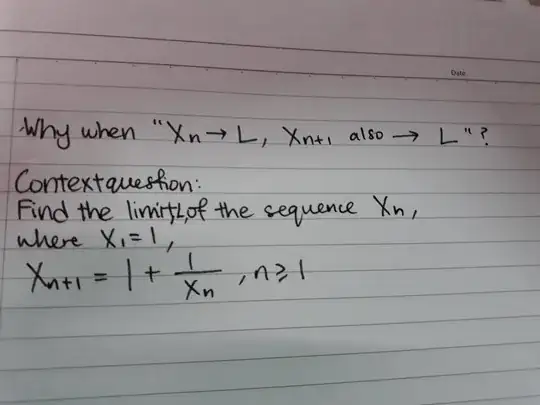 Date
Why when "Xn → L, Xn+1 also → L"?
Context question:
Find the limit, L, of the sequence Xn,
where X1 = 1,
Xn+1 = 1 + 1/Xn, n ≥ 1